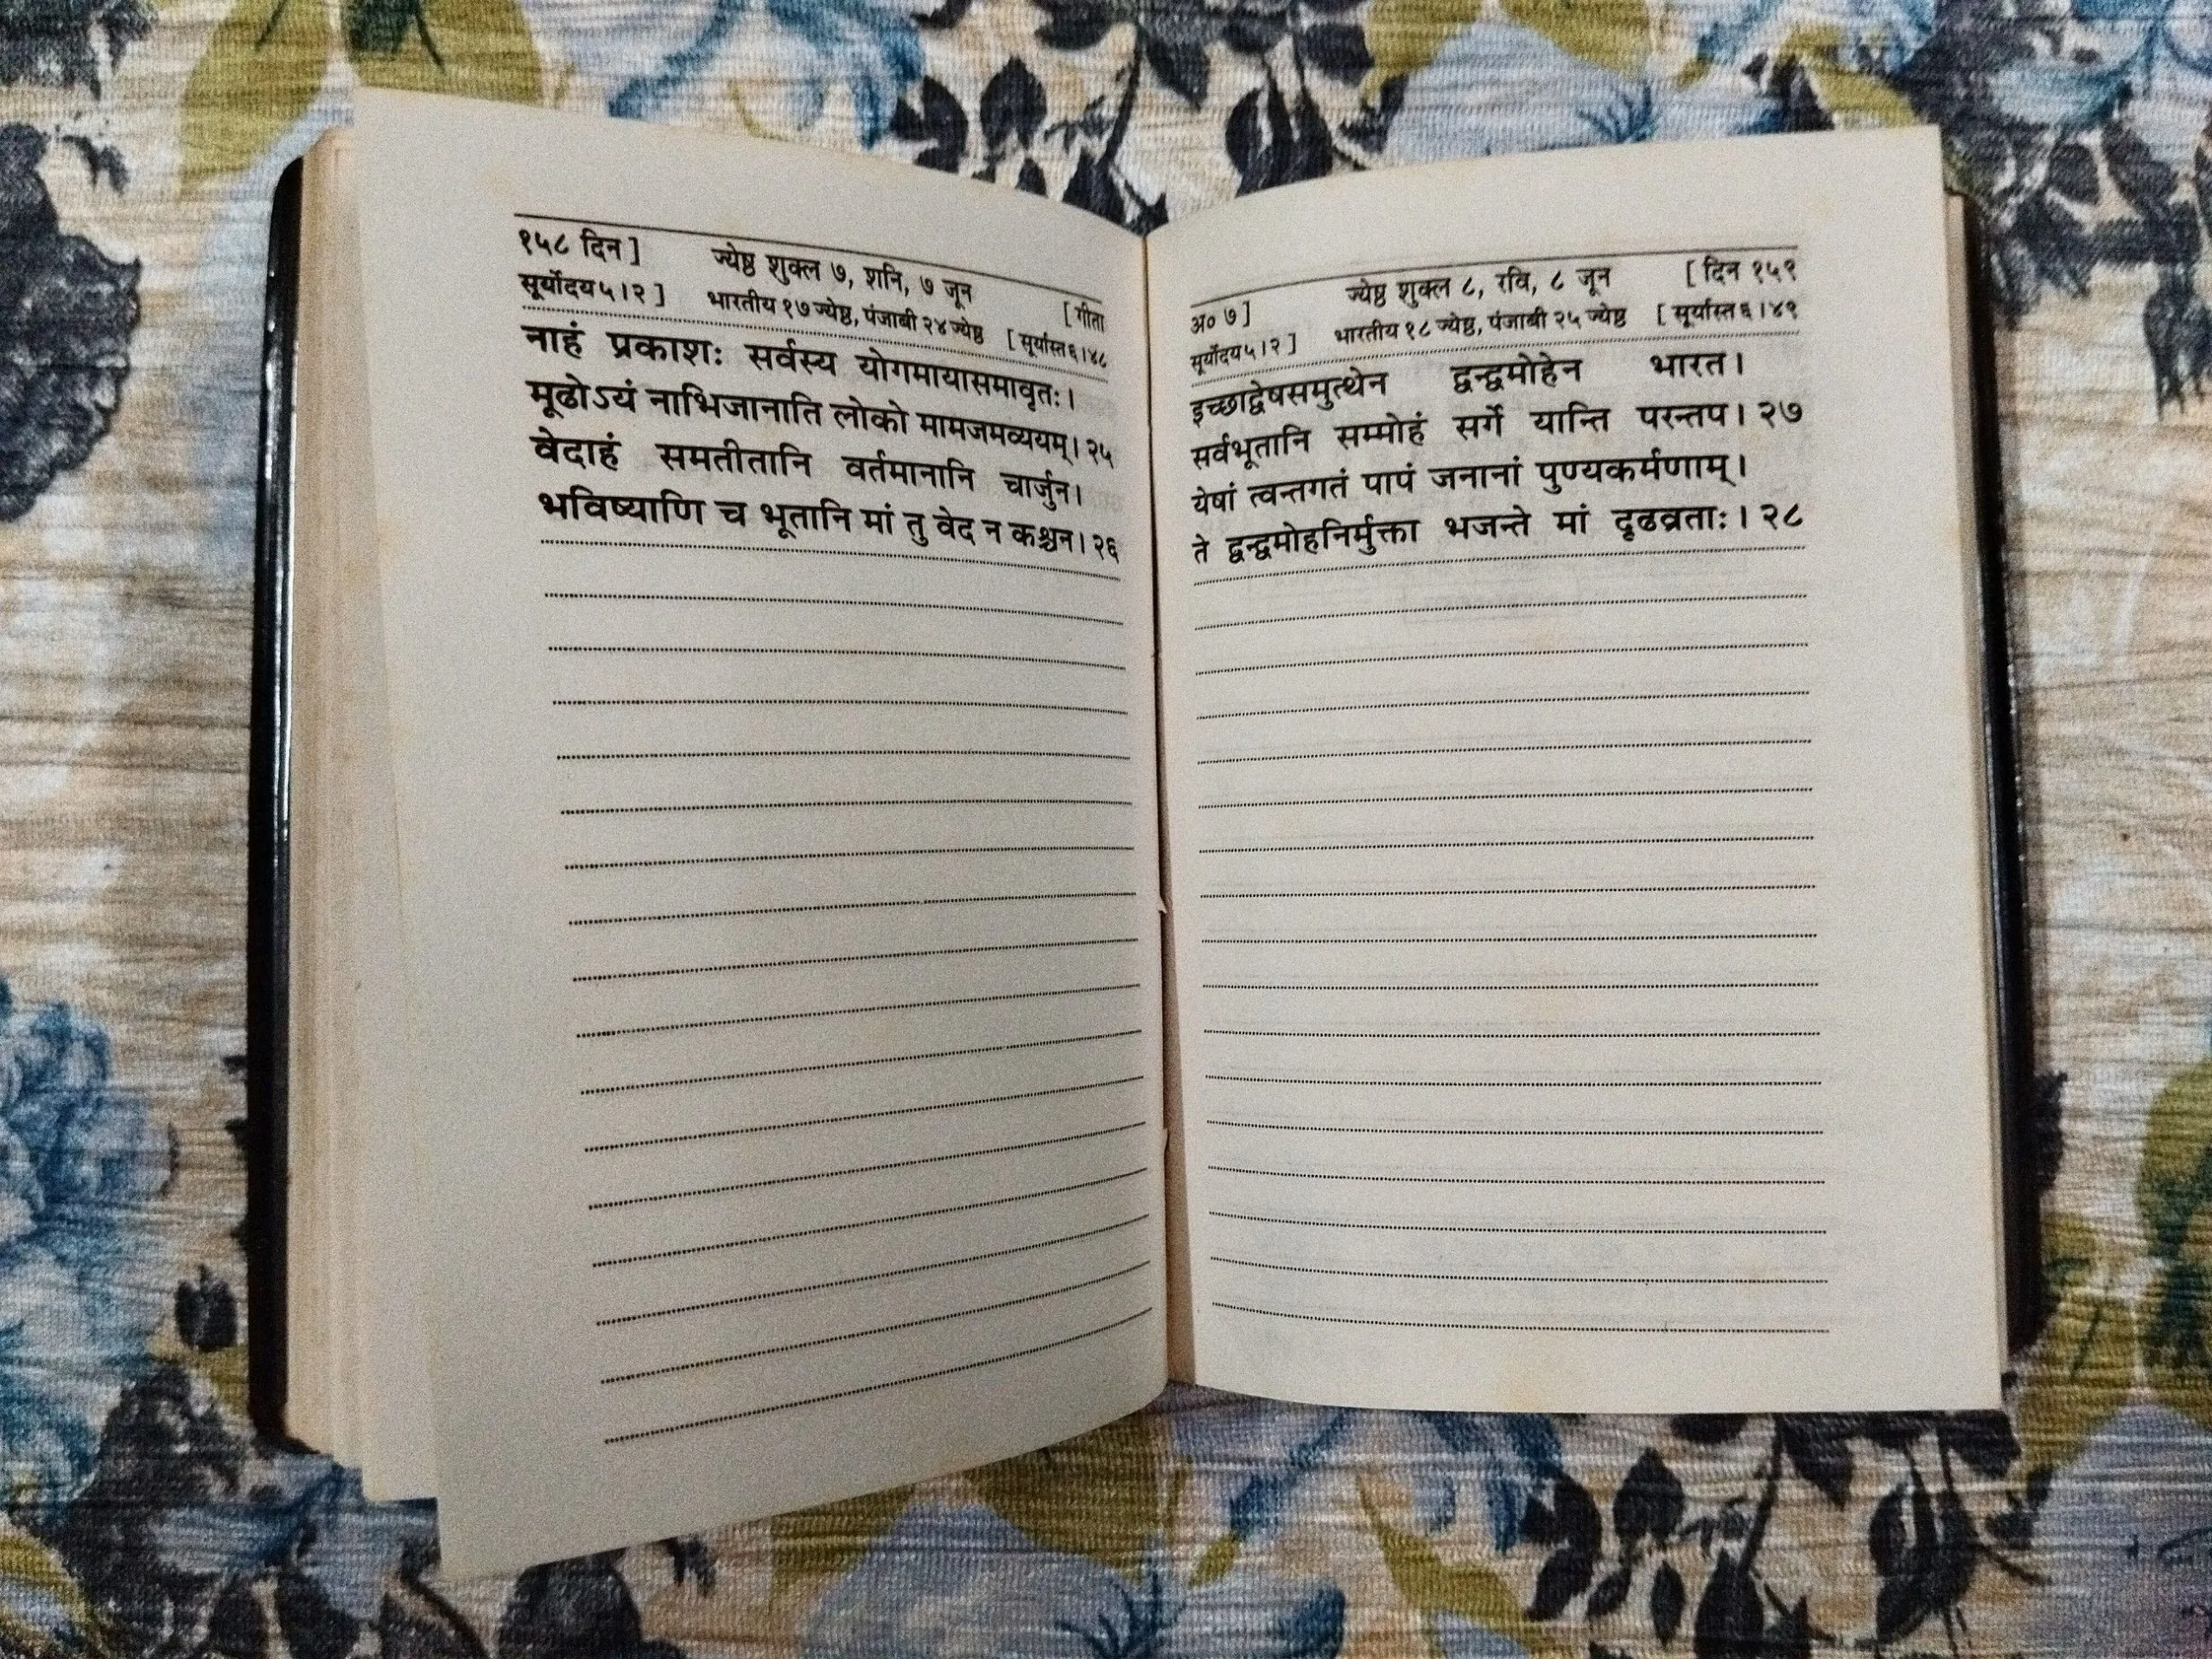 १५८ दिन] ज्येष्ठ शुक्ल ७, शनि, ७ जून [गीता
सूर्योदय५।२] भारतीय १७ज्येष्ठ, पंजाबी २४ज्येष्ठ [सूर्यास्त६।४८
नाहं प्रकाशः सर्वस्य योगमायासमावृतः।
मूढोऽयं नाभिजानाति लोको मामजमव्ययम्।२५
वेदाहं समतीतानि वर्तमानानि चार्जुन।
भविष्याणि च भूतानि मां तु वेद न कश्चन।२६
अ० ७] ज्येष्ठ शुक्ल ८, रवि, ८ जून [दिन १५९
सूर्योदय५।२] भारतीय १८ज्येष्ठ, पंजाबी २५ज्येष्ठ [सूर्यास्त६।४९
इच्छाद्वेषसमुत्थेन द्वन्द्वमोहेन भारत।
सर्वभूतानि सम्मोहं सर्गे यान्ति परन्तप।२७
येषां त्वन्तगतं पापं जनानां पुण्यकर्मणाम्।
ते द्वन्द्वमोहनिर्मुक्ता भजन्ते मां दृढव्रताः।२८